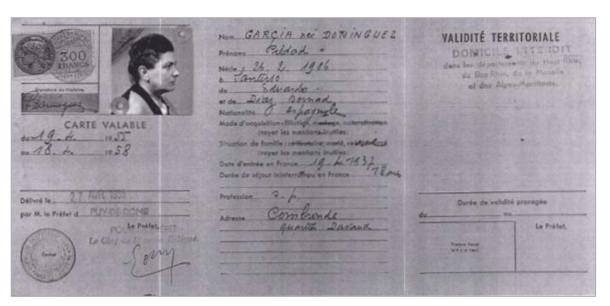 300
FRANCS
Signature du titulaire
CARTE VALABLE
du 19.4. 1955
au 18.4. 1958
Délivré le 27 AVR 1955
par M. le Préfet d PUY-DE-DOME
Le Préfet,
Nom GARÇIA née DOMINGUEZ
Prénoms Piédad
Né(e) 26.2.1906
à
de Eduardo
et de Diaz Bernad
Nationalité Espagnole
Mode d'acquisition :
(rayer les mentions inutiles)
Situation de famille : célibataire, marié,
(rayer les mentions inutiles)
Date d'entrée en France 19.2.1937
Durée de séjour ininterrompu en France 18 ans
Profession s.p.
Adresse Combronde
quartier
VALIDITÉ TERRITORIALE
DOMICILE INTERDIT
dans les départements du Haut-Rhin,
du Bas-Rhin, de la Moselle
et des Alpes-Maritimes.
Durée de validité prorogée
du au
Le Préfet,
Timbre fiscal